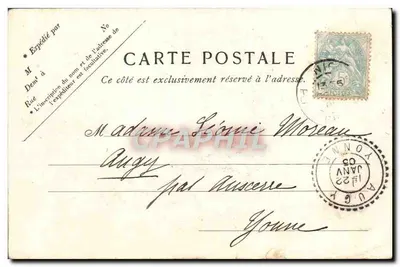 * Expédié par
M No
Demt à
Rue
* L'inscription du nom et de l'adresse de
l'expéditeur est facultative.
CARTE POSTALE
Ce côté est exclusivement réservé à l'adresse.
Madame Léonie Moreau
Augy
par Auxerre
Yonne
AUGY
YONNE
1E 22
JANV
05
CARTEPOSTALE